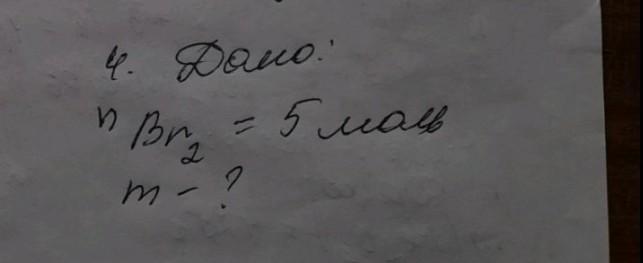 4. Дано:
n Br2 = 5 моль
m - ?